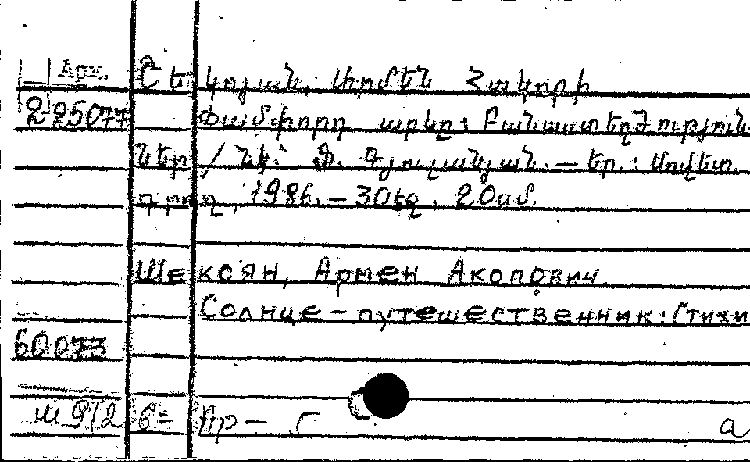 Арм. Շեկոյան, Արմեն Հակոբի
225077 Ճամփորդ արևը: Բանաստեղծություն
ներ / Նկ.՝ Ֆ. Գյուլանյան. — Եր.: Սովետ.
գրող, 1986. — 30եջ, 20սմ.
Шекоян, Армен Акопович.
Солнце - путешественник: Стихи
60073
а